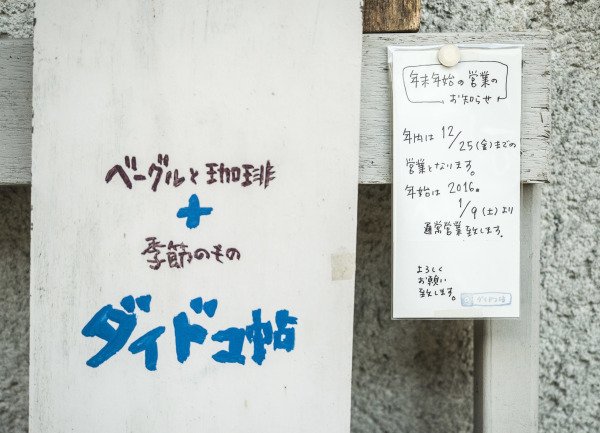 ベーグルと珈琲
+
季節のもの
ダイドコ帖
年末年始の営業の
お知らせ
年内は12/25(金)までの
営業となります。
年始は2016.
1/9(土)より
通常営業致します。
よろしく
お願い
致します。
ダイドコ帖